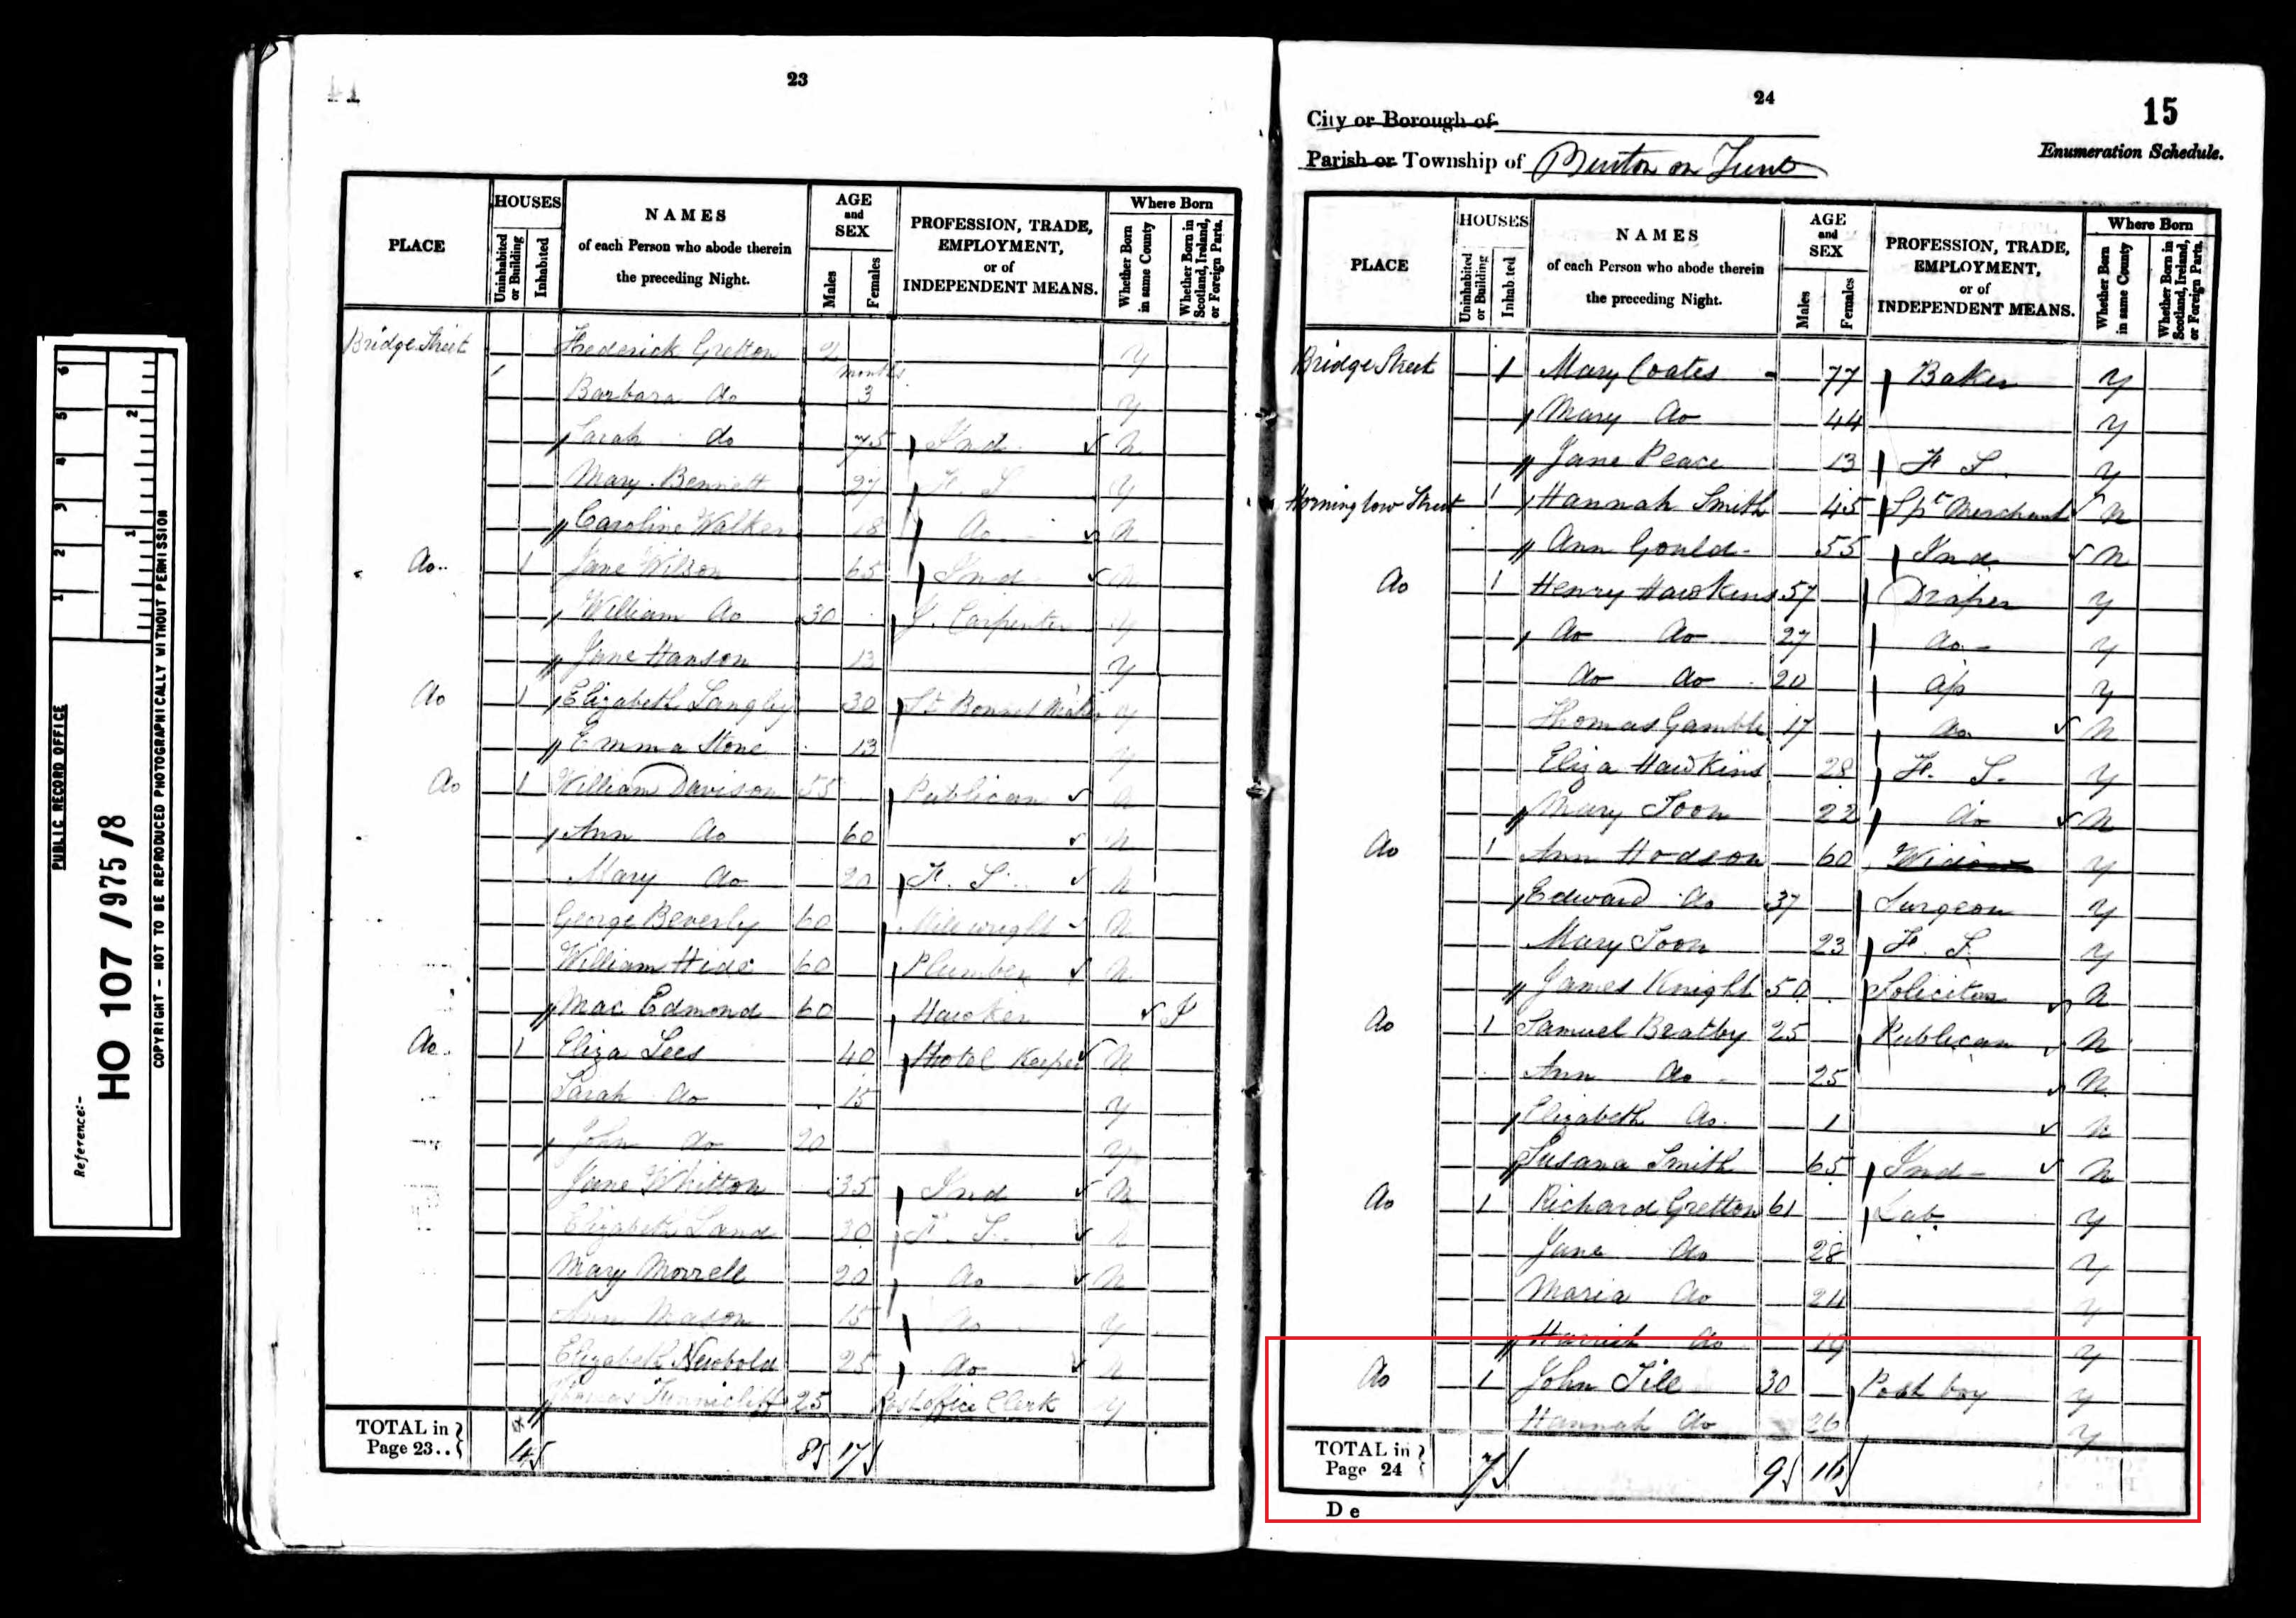 23
HOUSES
NAMES
AGE
and
SEX
PROFESSION, TRADE,
EMPLOYMENT,
or of
INDEPENDENT MEANS.
Where Born
PLACE
Uninhabited or Building
Inhabited
of each Person who abode therein
the preceding Night.
Males
Females
Whether Born in same County
Whether Born in Scotland, Ireland, or Foreign Parts.
Bridge Street Frederick Gretton 2 y
months
Barbara do 3 y
Sarah do 75 Ind N
Mary Bennett 27 F. S y
Caroline Walker 18 do N
do 1 Jane Wilson 65 Ind N
William do 30 J. Carpenter y
Jane Hanson 13 y
do 1 Elizabeth Langley 30 St Bonnet Maker y
Emma Stone 13 y
do 1 William Davison 55 Publican N
Ann do 60 N
Mary do 20 F. S. N
George Beverly 60 Millwright N
William Hide 60 Plumber N
Mac Edmond 60 Hawker I
do 1 Eliza Lees 40 Hotel Keeper N
Sarah do 15 y
John do 20 y
Jane Whitton 35 Ind N
Elizabeth Land 30 F. S. N
Mary Morrell 20 do N
Ann Mason 15 do y
Elizabeth Newbold 25 do N
Thomas Tunnicliff 25 Post office Clerk y
TOTAL in
Page 23.. 8 17
24
15
City or Borough of
Parish or Township of Burton on Trent
Enumeration Schedule.
HOUSES
NAMES
AGE
and
SEX
PROFESSION, TRADE,
EMPLOYMENT,
or of
INDEPENDENT MEANS.
Where Born
PLACE
Uninhabited or Building
Inhabited
of each Person who abode therein
the preceding Night.
Males
Females
Whether Born in same County
Whether Born in Scotland, Ireland, or Foreign Parts.
Bridge Street 1 Mary Coates 77 Baker y
Mary do 44 y
Jane Peace 13 F S. y
Horninglow Street 1 Hannah Smith 45 Spt Merchant N
Ann Gould 55 Ind. N
do 1 Henry Hawkins 57 Draper y
do do 27 do y
do do 20 Ap y
Thomas Gamble 17 do N
Eliza Hawkins 28 F. S. y
Mary Toon 22 do N
do 1 Ann Hodson 60 Widow y
Edward do 37 Surgeon y
Mary Toon 23 F. S. y
James Knight 50 Solicitor N
do 1 Samuel Bratby 25 Publican N
Ann do 25 N
Elizabeth do 1 N
Susana Smith 65 Ind N
do 1 Richard Gretton 61 Lab. y
Jane do 28 y
Maria do 24 y
Harriet do 19 y
do 1 John Till 30 Post boy y
Hannah do 26 y
TOTAL in
Page 24 7 9 16
D e
PUBLIC RECORD OFFICE
Reference:-
HO 107 /975/8
COPYRIGHT - NOT TO BE REPRODUCED PHOTOGRAPHICALLY WITHOUT PERMISSION
1 2 3 4 5 6
1 2